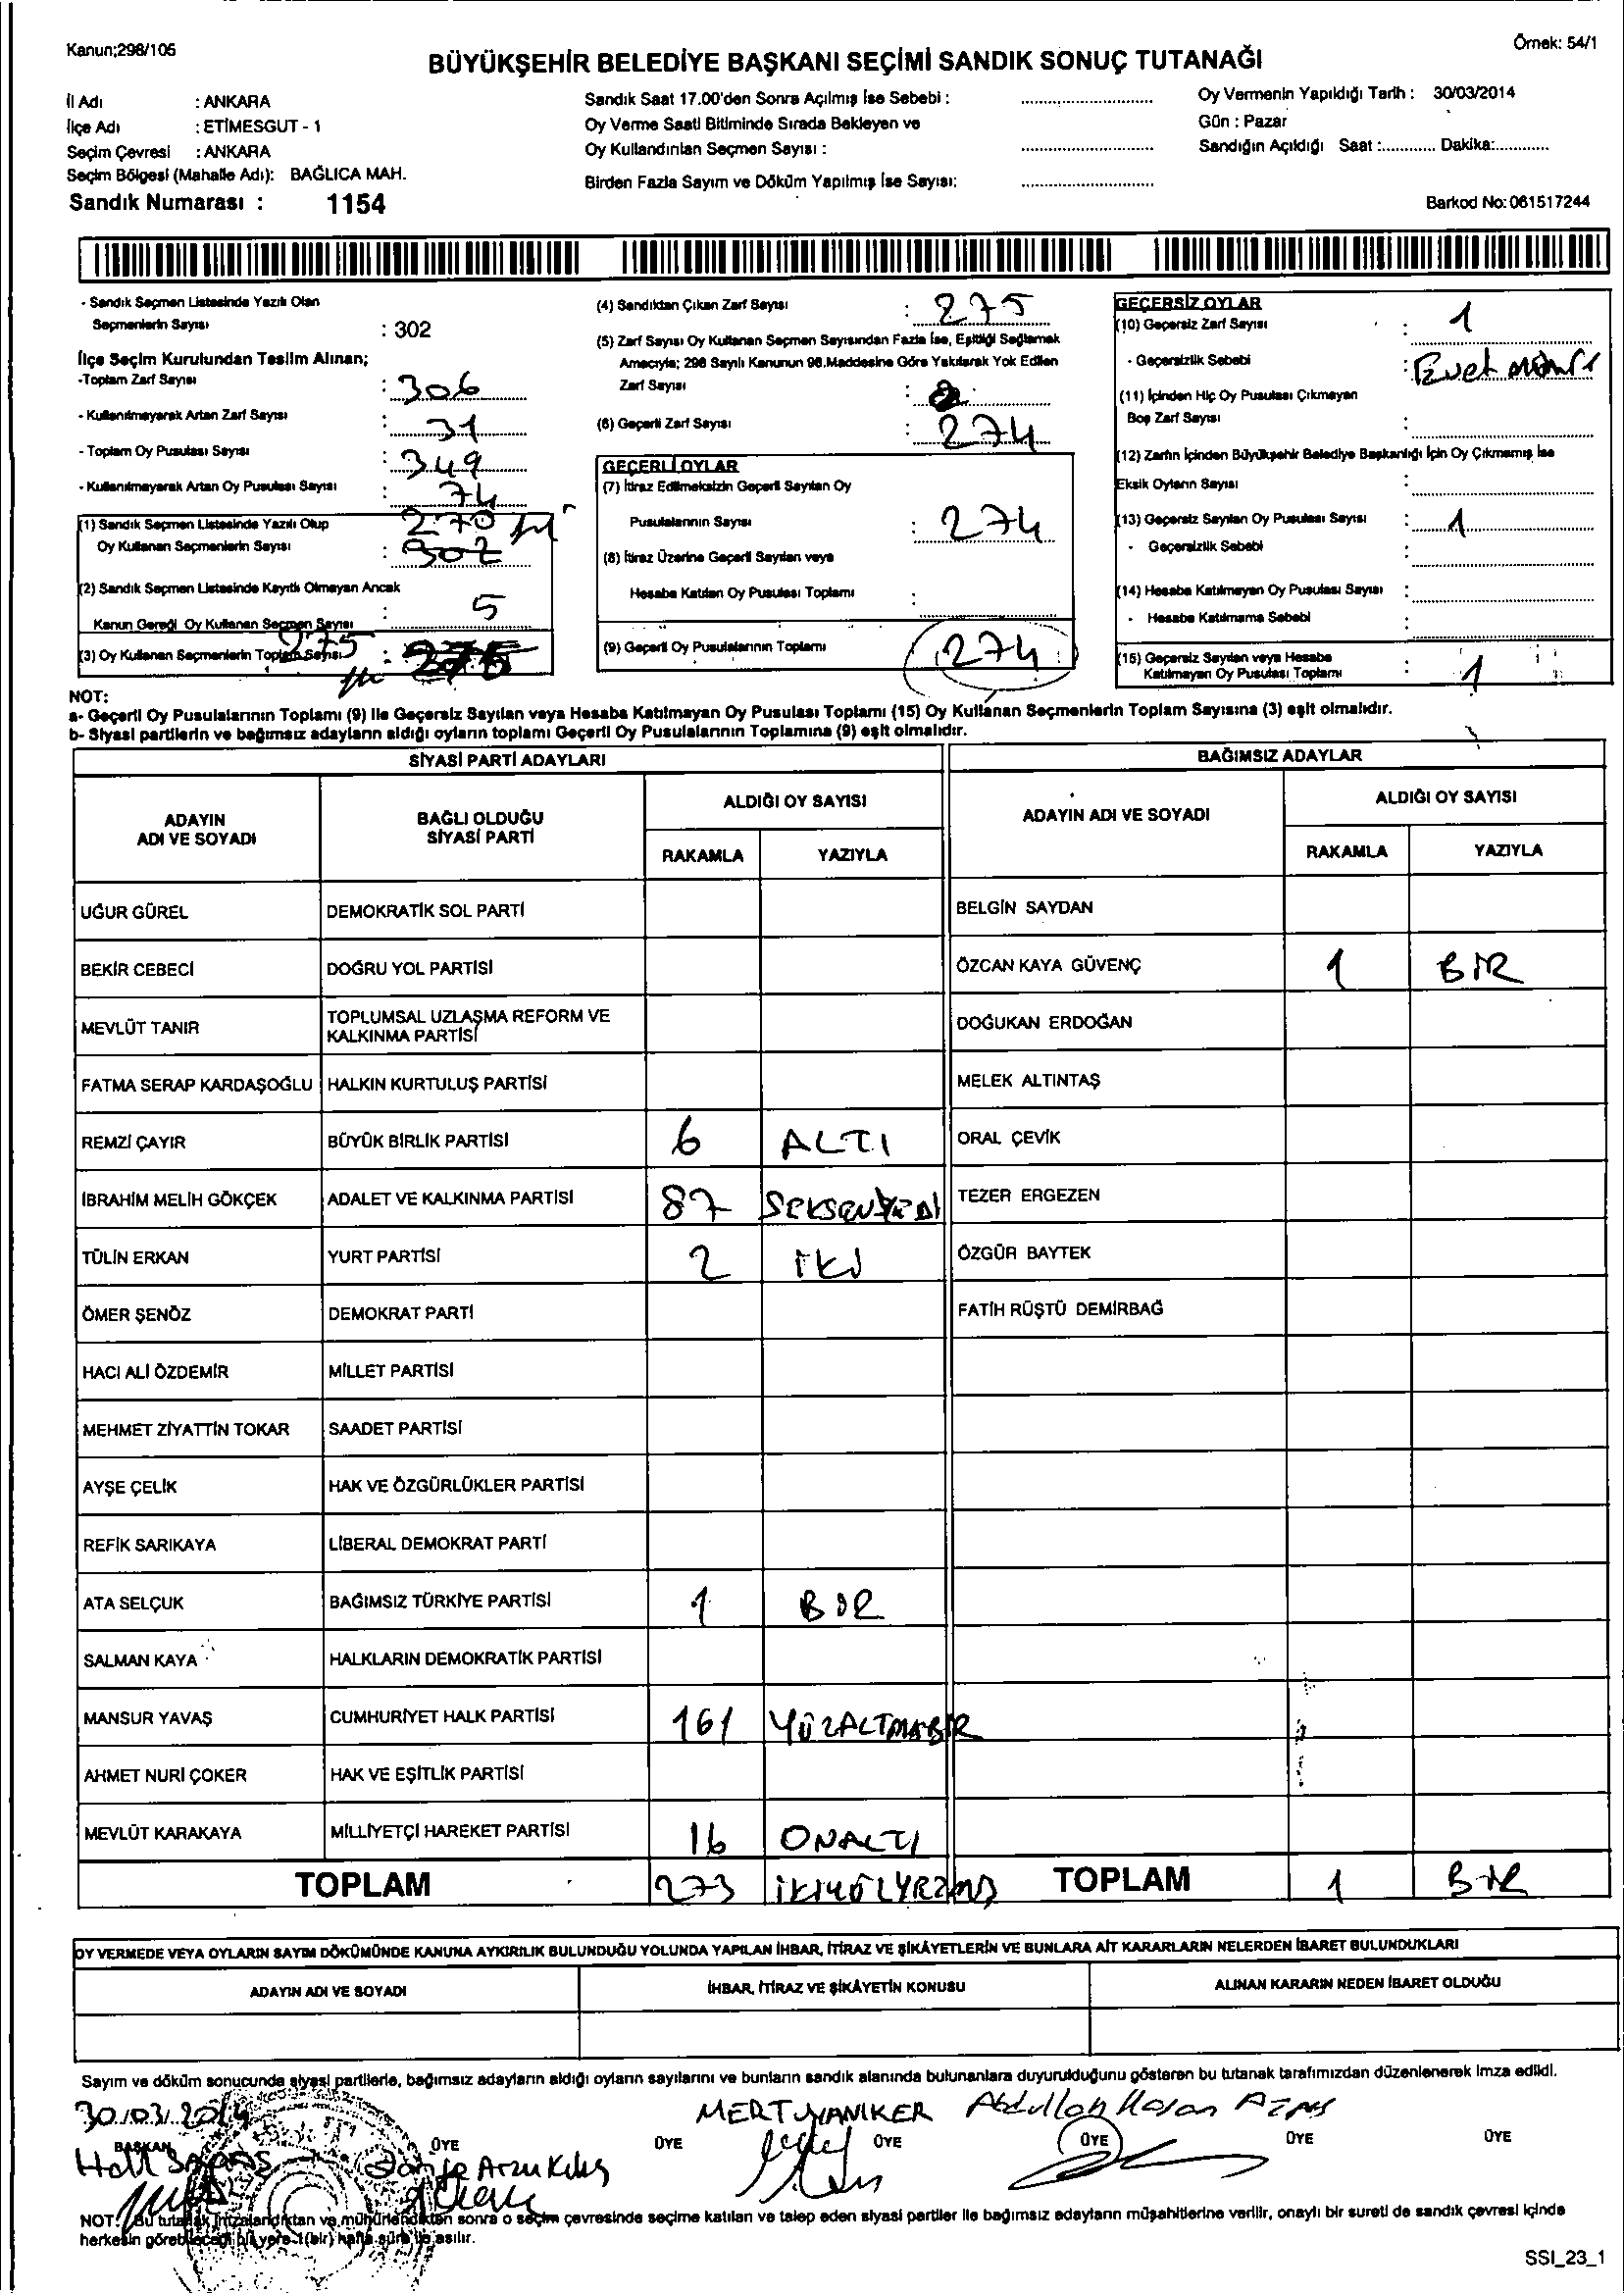 Kanun;298/105
Örnek: 54/1
BÜYÜKŞEHİR BELEDİYE BAŞKANI SEÇİMİ SANDIK SONUÇ TUTANAĞI
İl Adı : ANKARA
İlçe Adı : ETİMESGUT - 1
Seçim Çevresi : ANKARA
Seçim Bölgesi (Mahalle Adı): BAĞLICA MAH.
Sandık Numarası : 1154
Sandık Saat 17.00'den Sonra Açılmış İse Sebebi :
Oy Verme Saati Bitiminde Sırada Bekleyen ve
Oy Kullandırılan Seçmen Sayısı :
Birden Fazla Sayım ve Döküm Yapılmış İse Sayısı:
Oy Vermenin Yapıldığı Tarih : 30/03/2014
Gün : Pazar
Sandığın Açıldığı Saat :............ Dakika:............
Barkod No: 061517244
- Sandık Seçmen Listesinde Yazılı Olan
Seçmenlerin Sayısı : 302
İlçe Seçim Kurulundan Teslim Alınan;
-Toplam Zarf Sayısı : 306
- Kullanılmayarak Artan Zarf Sayısı : 31
- Toplam Oy Pusulası Sayısı : 349
- Kullanılmayarak Artan Oy Pusulası Sayısı : 74
(1) Sandık Seçmen Listesinde Yazılı Olup 270
Oy Kullanan Seçmenlerin Sayısı : 302
(2) Sandık Seçmen Listesinde Kayıtlı Olmayan Ancak
Kanun Gereği Oy Kullanan Seçmen Sayısı : 5
275
(3) Oy Kullanan Seçmenlerin Toplam Sayısı :
(4) Sandıktan Çıkan Zarf Sayısı : 275
(5) Zarf Sayısı Oy Kullanan Seçmen Sayısından Fazla İse, Eşitliği Sağlamak
Amacıyla; 298 Sayılı Kanunun 98.Maddesine Göre Yakılarak Yok Edilen
Zarf Sayısı :
(6) Geçerli Zarf Sayısı : 274
GEÇERLİ OYLAR
(7) İtiraz Edilmeksizin Geçerli Sayılan Oy
Pusulalarının Sayısı : 274
(8) İtiraz Üzerine Geçerli Sayılan veya
Hesaba Katılan Oy Pusulası Toplamı :
(9) Geçerli Oy Pusulalarının Toplamı : 274
GEÇERSİZ OYLAR
(10) Geçersiz Zarf Sayısı : 1
- Geçersizlik Sebebi : Evet mührü
(11) İçinden Hiç Oy Pusulası Çıkmayan
Boş Zarf Sayısı :
(12) Zarfın İçinden Büyükşehir Belediye Başkanlığı İçin Oy Çıkmamış İse
Eksik Oyların Sayısı :
(13) Geçersiz Sayılan Oy Pusulası Sayısı : 1
- Geçersizlik Sebebi :
(14) Hesaba Katılmayan Oy Pusulası Sayısı :
- Hesaba Katılmama Sebebi :
(15) Geçersiz Sayılan veya Hesaba
Katılmayan Oy Pusulası Toplamı : 1
NOT:
a- Geçerli Oy Pusulalarının Toplamı (9) ile Geçersiz Sayılan veya Hesaba Katılmayan Oy Pusulası Toplamı (15) Oy Kullanan Seçmenlerin Toplam Sayısına (3) eşit olmalıdır.
b- Siyasi partilerin ve bağımsız adayların aldığı oyların toplamı Geçerli Oy Pusulalarının Toplamına (9) eşit olmalıdır.
SİYASİ PARTİ ADAYLARI
BAĞIMSIZ ADAYLAR
ADAYIN ADI VE SOYADI
BAĞLI OLDUĞU SİYASİ PARTİ
ALDIĞI OY SAYISI
RAKAMLA YAZIYLA
ADAYIN ADI VE SOYADI
ALDIĞI OY SAYISI
RAKAMLA YAZIYLA
UĞUR GÜREL DEMOKRATİK SOL PARTİ BELGİN SAYDAN
BEKİR CEBECİ DOĞRU YOL PARTİSİ ÖZCAN KAYA GÜVENÇ 1 BİR
MEVLÜT TANIR TOPLUMSAL UZLAŞMA REFORM VE KALKINMA PARTİSİ DOĞUKAN ERDOĞAN
FATMA SERAP KARDAŞOĞLU HALKIN KURTULUŞ PARTİSİ MELEK ALTINTAŞ
REMZİ ÇAYIR BÜYÜK BİRLİK PARTİSİ 6 ALTI ORAL ÇEVİK
İBRAHİM MELİH GÖKÇEK ADALET VE KALKINMA PARTİSİ 87 SEKSENYEDİ TEZER ERGEZEN
TÜLİN ERKAN YURT PARTİSİ 2 İKİ ÖZGÜR BAYTEK
ÖMER ŞENÖZ DEMOKRAT PARTİ FATİH RÜŞTÜ DEMİRBAĞ
HACI ALİ ÖZDEMİR MİLLET PARTİSİ
MEHMET ZİYATTİN TOKAR SAADET PARTİSİ
AYŞE ÇELİK HAK VE ÖZGÜRLÜKLER PARTİSİ
REFİK SARIKAYA LİBERAL DEMOKRAT PARTİ
ATA SELÇUK BAĞIMSIZ TÜRKİYE PARTİSİ 1 BİR
SALMAN KAYA HALKLARIN DEMOKRATİK PARTİSİ
MANSUR YAVAŞ CUMHURİYET HALK PARTİSİ 161 YÜZALTMIŞBİR
AHMET NURİ ÇOKER HAK VE EŞİTLİK PARTİSİ
MEVLÜT KARAKAYA MİLLİYETÇİ HAREKET PARTİSİ 16 ONALTI
TOPLAM 273 TOPLAM 1 BİR
OY VERMEDE VEYA OYLARIN SAYIM DÖKÜMÜNDE KANUNA AYKIRILIK BULUNDUĞU YOLUNDA YAPILAN İHBAR, İTİRAZ VE ŞİKÂYETLERİN VE BUNLARA AİT KARARLARIN NELERDEN İBARET BULUNDUKLARI
ADAYIN ADI VE SOYADI İHBAR, İTİRAZ VE ŞİKÂYETİN KONUSU ALINAN KARARIN NEDEN İBARET OLDUĞU
Sayım ve döküm sonucunda siyasi partilerle, bağımsız adayların aldığı oyların sayılarını ve bunların sandık alanında bulunanlara duyurulduğunu gösteren bu tutanak tarafımızdan düzenlenerek imza edildi.
30/03/2014 MERT YANIKER Abdullah Hasan
BAŞKAN ÜYE ÜYE ÜYE ÜYE ÜYE ÜYE
Arzu Kılıç
NOT: Bu tutanak imzalandıktan ve mühürlendikten sonra o seçim çevresinde seçime katılan ve talep eden siyasi partiler ile bağımsız adayların müşahitlerine verilir, onaylı bir sureti de sandık çevresi içinde
herkesin görebileceği bir yere 1(bir) hafta süre ile asılır.
SSI_23_1